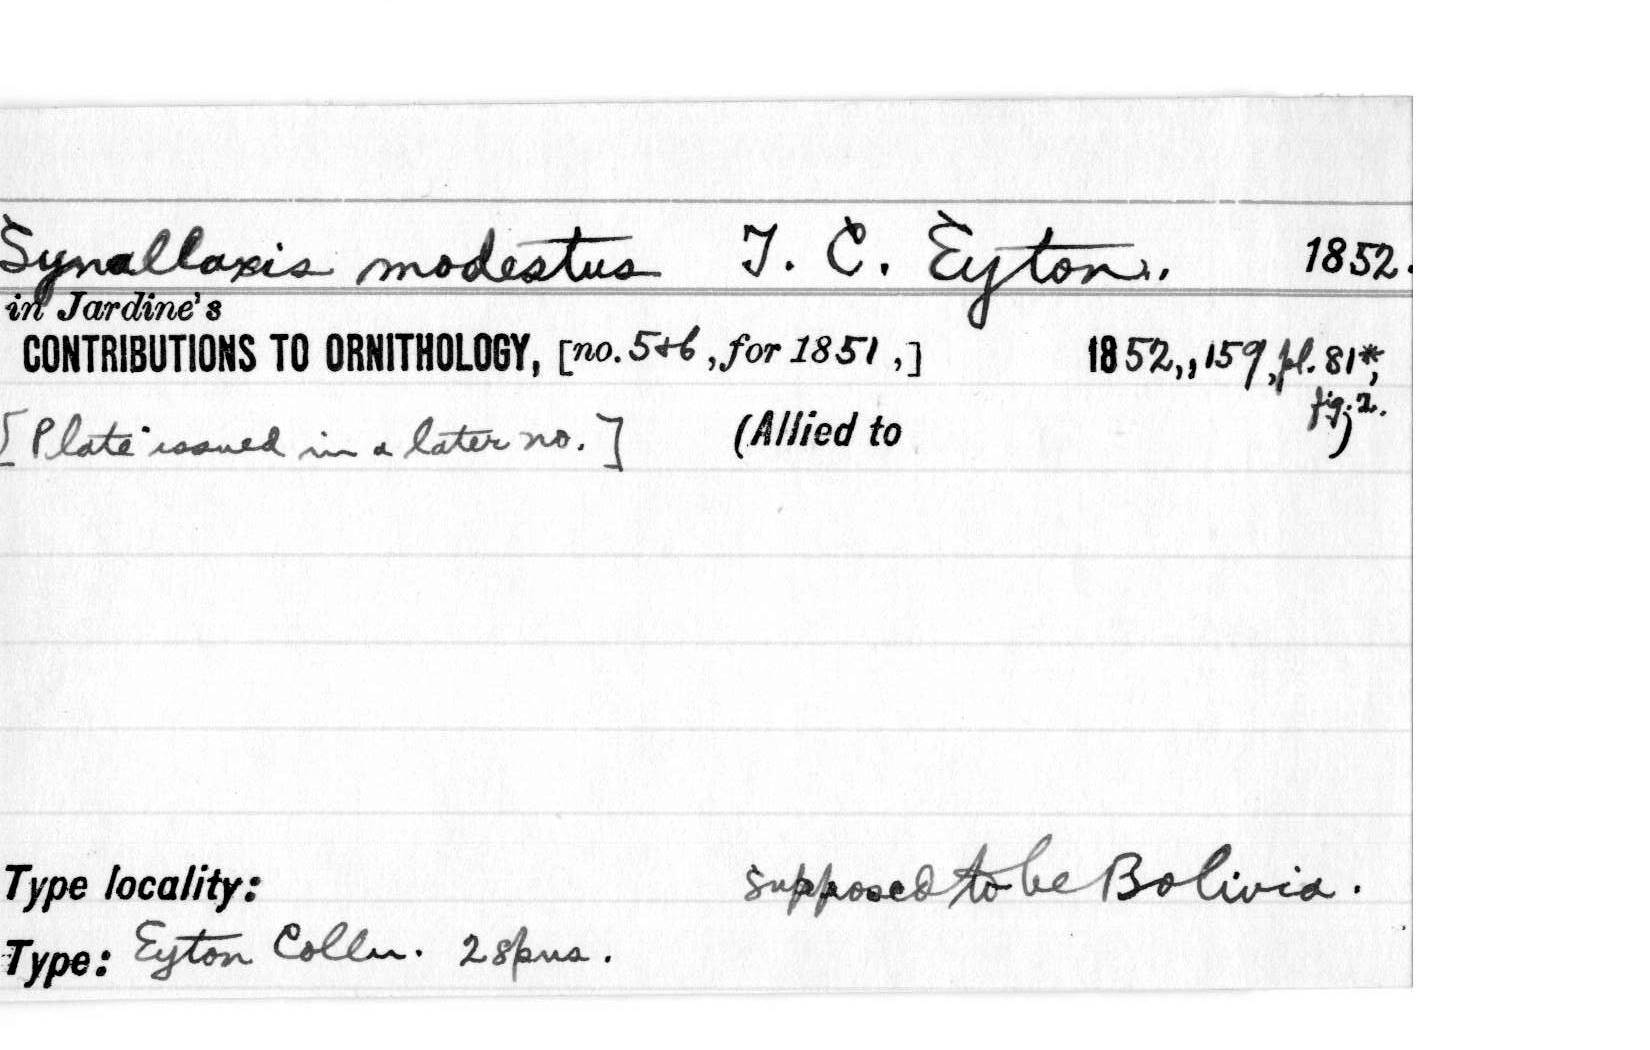 Synallaxis modestus T. C. Eyton. 1852.
in Jardine's
CONTRIBUTIONS TO ORNITHOLOGY, [no. 5+6, for 1851,] 1852,, 159, pl. 81*,
fig. 2.
[Plate issued in a later no.] (Allied to )
Type locality: Supposed to be Bolivia.
Type: Eyton Colln. 2 spns.